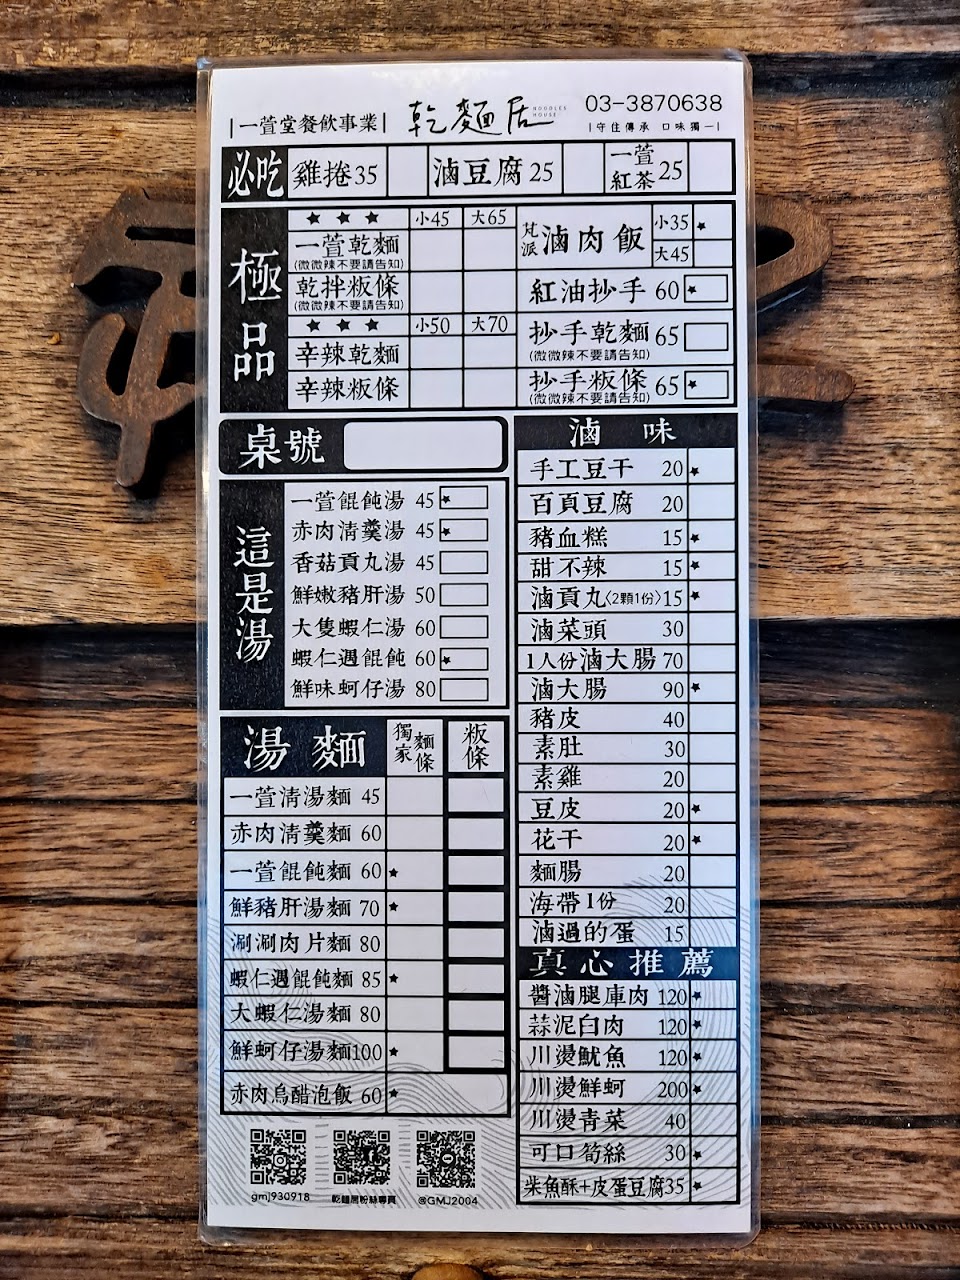 |一萱堂餐飲事業|
乾麵居
NOODLES HOUSE
03-3870638
|守住傳承 口味獨一|
必吃
雞捲35
滷豆腐25
一萱紅茶25
極品
★ ★ ★ 小45 大65
一萱乾麵
(微微辣不要請告知)
乾拌粄條
(微微辣不要請告知)
★ ★ ★ 小50 大70
辛辣乾麵
辛辣粄條
梵派滷肉飯 小35 ★
大45
紅油抄手 60 ★
抄手乾麵 65
(微微辣不要請告知)
抄手粄條 65 ★
(微微辣不要請告知)
桌號
這是湯
一萱餛飩湯 45 ★
赤肉清羹湯 45 ★
香菇貢丸湯 45
鮮嫩豬肝湯 50
大隻蝦仁湯 60
蝦仁遇餛飩 60 ★
鮮味蚵仔湯 80
湯麵 獨家麵條 粄條
一萱清湯麵 45
赤肉清羹麵 60
一萱餛飩麵 60 ★
鮮豬肝湯麵 70 ★
涮涮肉片麵 80
蝦仁遇餛飩麵 85 ★
大蝦仁湯麵 80
鮮蚵仔湯麵100 ★
赤肉烏醋泡飯 60 ★
滷味
手工豆干 20 ★
百頁豆腐 20
豬血糕 15 ★
甜不辣 15 ★
滷貢丸〈2顆1份〉15 ★
滷菜頭 30
1人份滷大腸 70
滷大腸 90 ★
豬皮 40
素肚 30
素雞 20
豆皮 20 ★
花干 20 ★
麵腸 20
海帶1份 20
滷過的蛋 15
真心推薦
醬滷腿庫肉 120 ★
蒜泥白肉 120 ★
川燙魷魚 120 ★
川燙鮮蚵 200 ★
川燙青菜 40
可口筍絲 30 ★
柴魚酥+皮蛋豆腐35 ★
gmj930918
乾麵居粉絲專頁
@GMJ2004